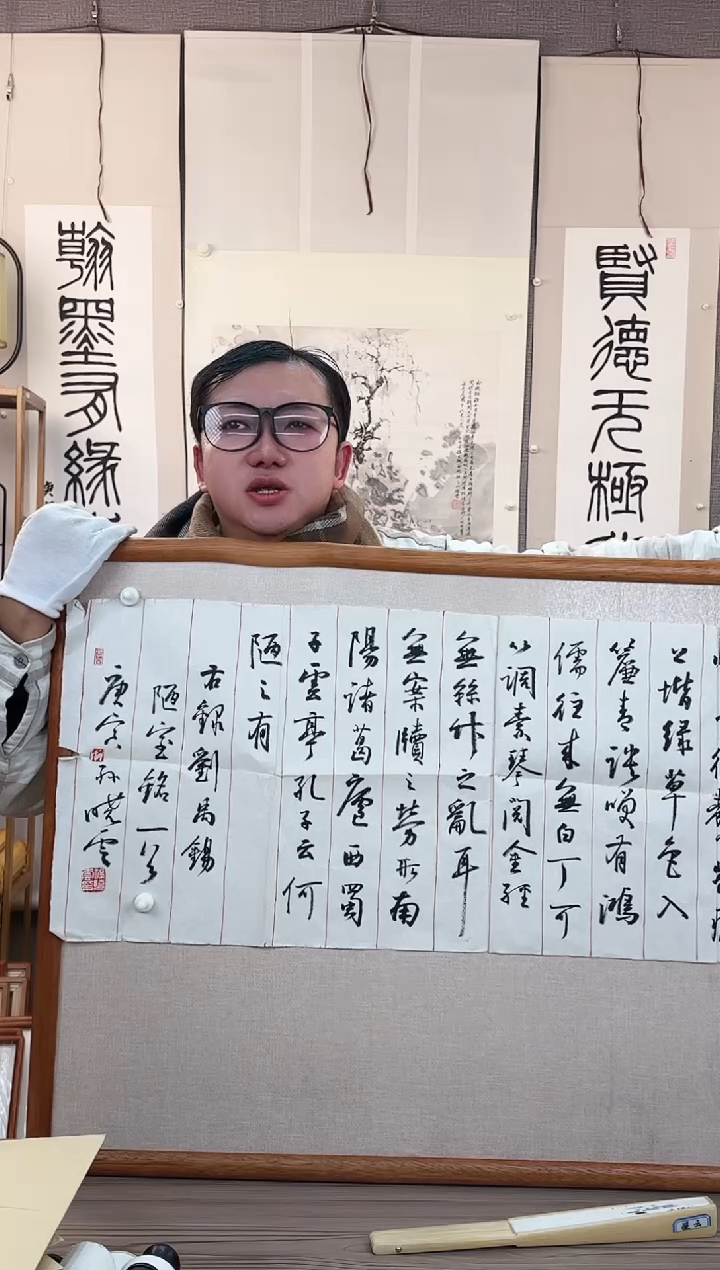 賢德无極
翰墨有緣
上堦綠草色入
簾青談咲有鴻
儒往來無白丁可
以調素琴閱金經
無絲竹之亂耳
無案牘之勞形南
陽諸葛廬西蜀
子雲亭孔子云何
陋之有
右録劉禹錫
陋室銘一首
庚寅孫曉雲